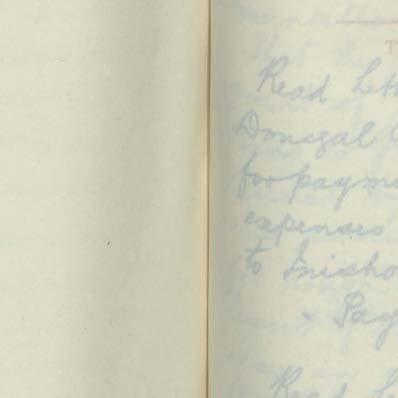 T
Read Lett
Donegal C
for payme
expenses
to Inisho
- Pay
Read Le